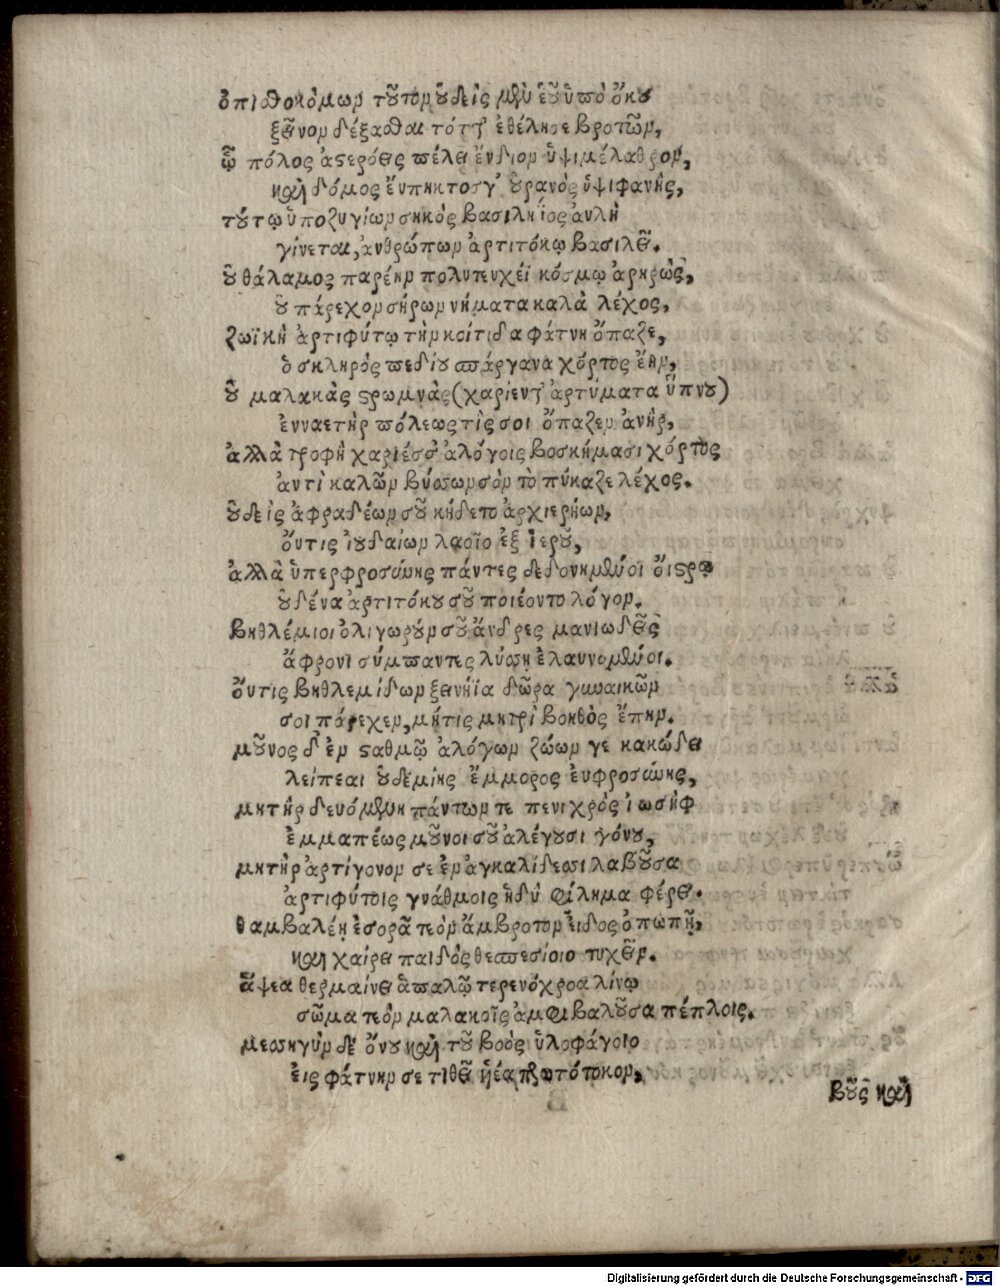 ὀπισθονόμων τοῦτον οὐδεὶς μὲν ἑοῦ ὑπὸ οἴκου
ξεῖνον δέξασθαι τότ' ἐθέλησε βροτῶν,
ᾧ πόλος ἀστερόεις πέλει ἔνδιον ὑψιμέλαθρον,
καὶ δόμος ἔυπηκτοσγ' οὐρανὸς ὑψιφανὴς,
τούτῳ ὑποζυγίων σηκὸς βασιλήϊος αὐλὴ
γίνεται, ἀνθρώπων ἀρτιτόκῳ βασιλεῖ.
οὐ θάλαμος παρέην πολυτευχέϊ κόσμῳ ἀρηρὼς,
οὐ πάρεχον σήρων νήματα καλὰ λέχος,
ζωϊκὴ ἀρτιφύτῳ τὴν κοίτιδα φάτνη ὄπαζε,
ὁ σκληρὸς πεδίου σπάργανα χόρτος ἔην,
οὐ μαλακὰς στρωμνὰς (χαρίεντ' ἀρτύματα ὕπνου)
ἐνναετὴρ πόλεως τὶς σοι ὄπαζεν ἀνὴρ,
ἀλλὰ τροφὴ χαρίεσσ' ἀλόγοις βοσκήμασι χόρτος
ἀντὶ καλῶν βύσσων σὸν τὸ πύκαζε λέχος.
οὐδεὶς ἀφραδέων σοῦ κήδετο ἀρχιερήων,
οὔτις ἰουδαίων λαοῖο ἐξ ἱεροῦ,
ἀλλὰ ὑπερφροσύνης πάντες δεδονημένοι οἴστρῳ
οὐδένα ἀρτιτόκου σοῦ ποιέοντο λόγον.
Βηθλέμιοι ὀλιγωροῦν σοῦ ἄνδρες μανιωδεῖς
ἄφρονι σύμπαντες λύσσῃ ἐλαυνομένοι.
οὔτις βηθλεμίδων ξεινήϊα δῶρα γυναικῶν
σοι πάρεχεν, μήτις μητρὶ βοηθὸς ἔπην.
μοῦνος δ' ἐν σταθμῷ ἀλόγων ζώων γε κακώδει
λείπεαι οὐδεμίης ἔμμορος εὐφροσύνης,
μητὴρ δευόμενη πάντων τε πενιχρὸς ἰωσὴφ
ἐμμαπέως μοῦνοι σοῦ ἀλέγουσι γόνου,
μητὴρ ἀρτίγονον σε ἐν ἀγκαλίδεσσι λαβοῦσα
ἀρτιφύτοις γνάθμοις ἡδὺ φίλημα φέρει.
θαμβαλέῃ ἐσορᾶ τεὸν ἄμβροτον εἶδος ὀπωπῇ,
καὶ χαίρει παιδὸς θεσπεσίοιο τυχεῖν.
ἅψεα θερμαίνει ἁπαλῷ τερενόχροα λίνῳ
σῶμα τεὸν μαλακοῖς ἀμφιβαλοῦσα πέπλοις.
μεσσηγὺν δὲ ὄνου καὶ τοῦ βοὸς ὑλοφάγοιο
εἰς φάτνην σε τιθεῖ ἡέα πρωτότοκον,
βοῦς καὶ